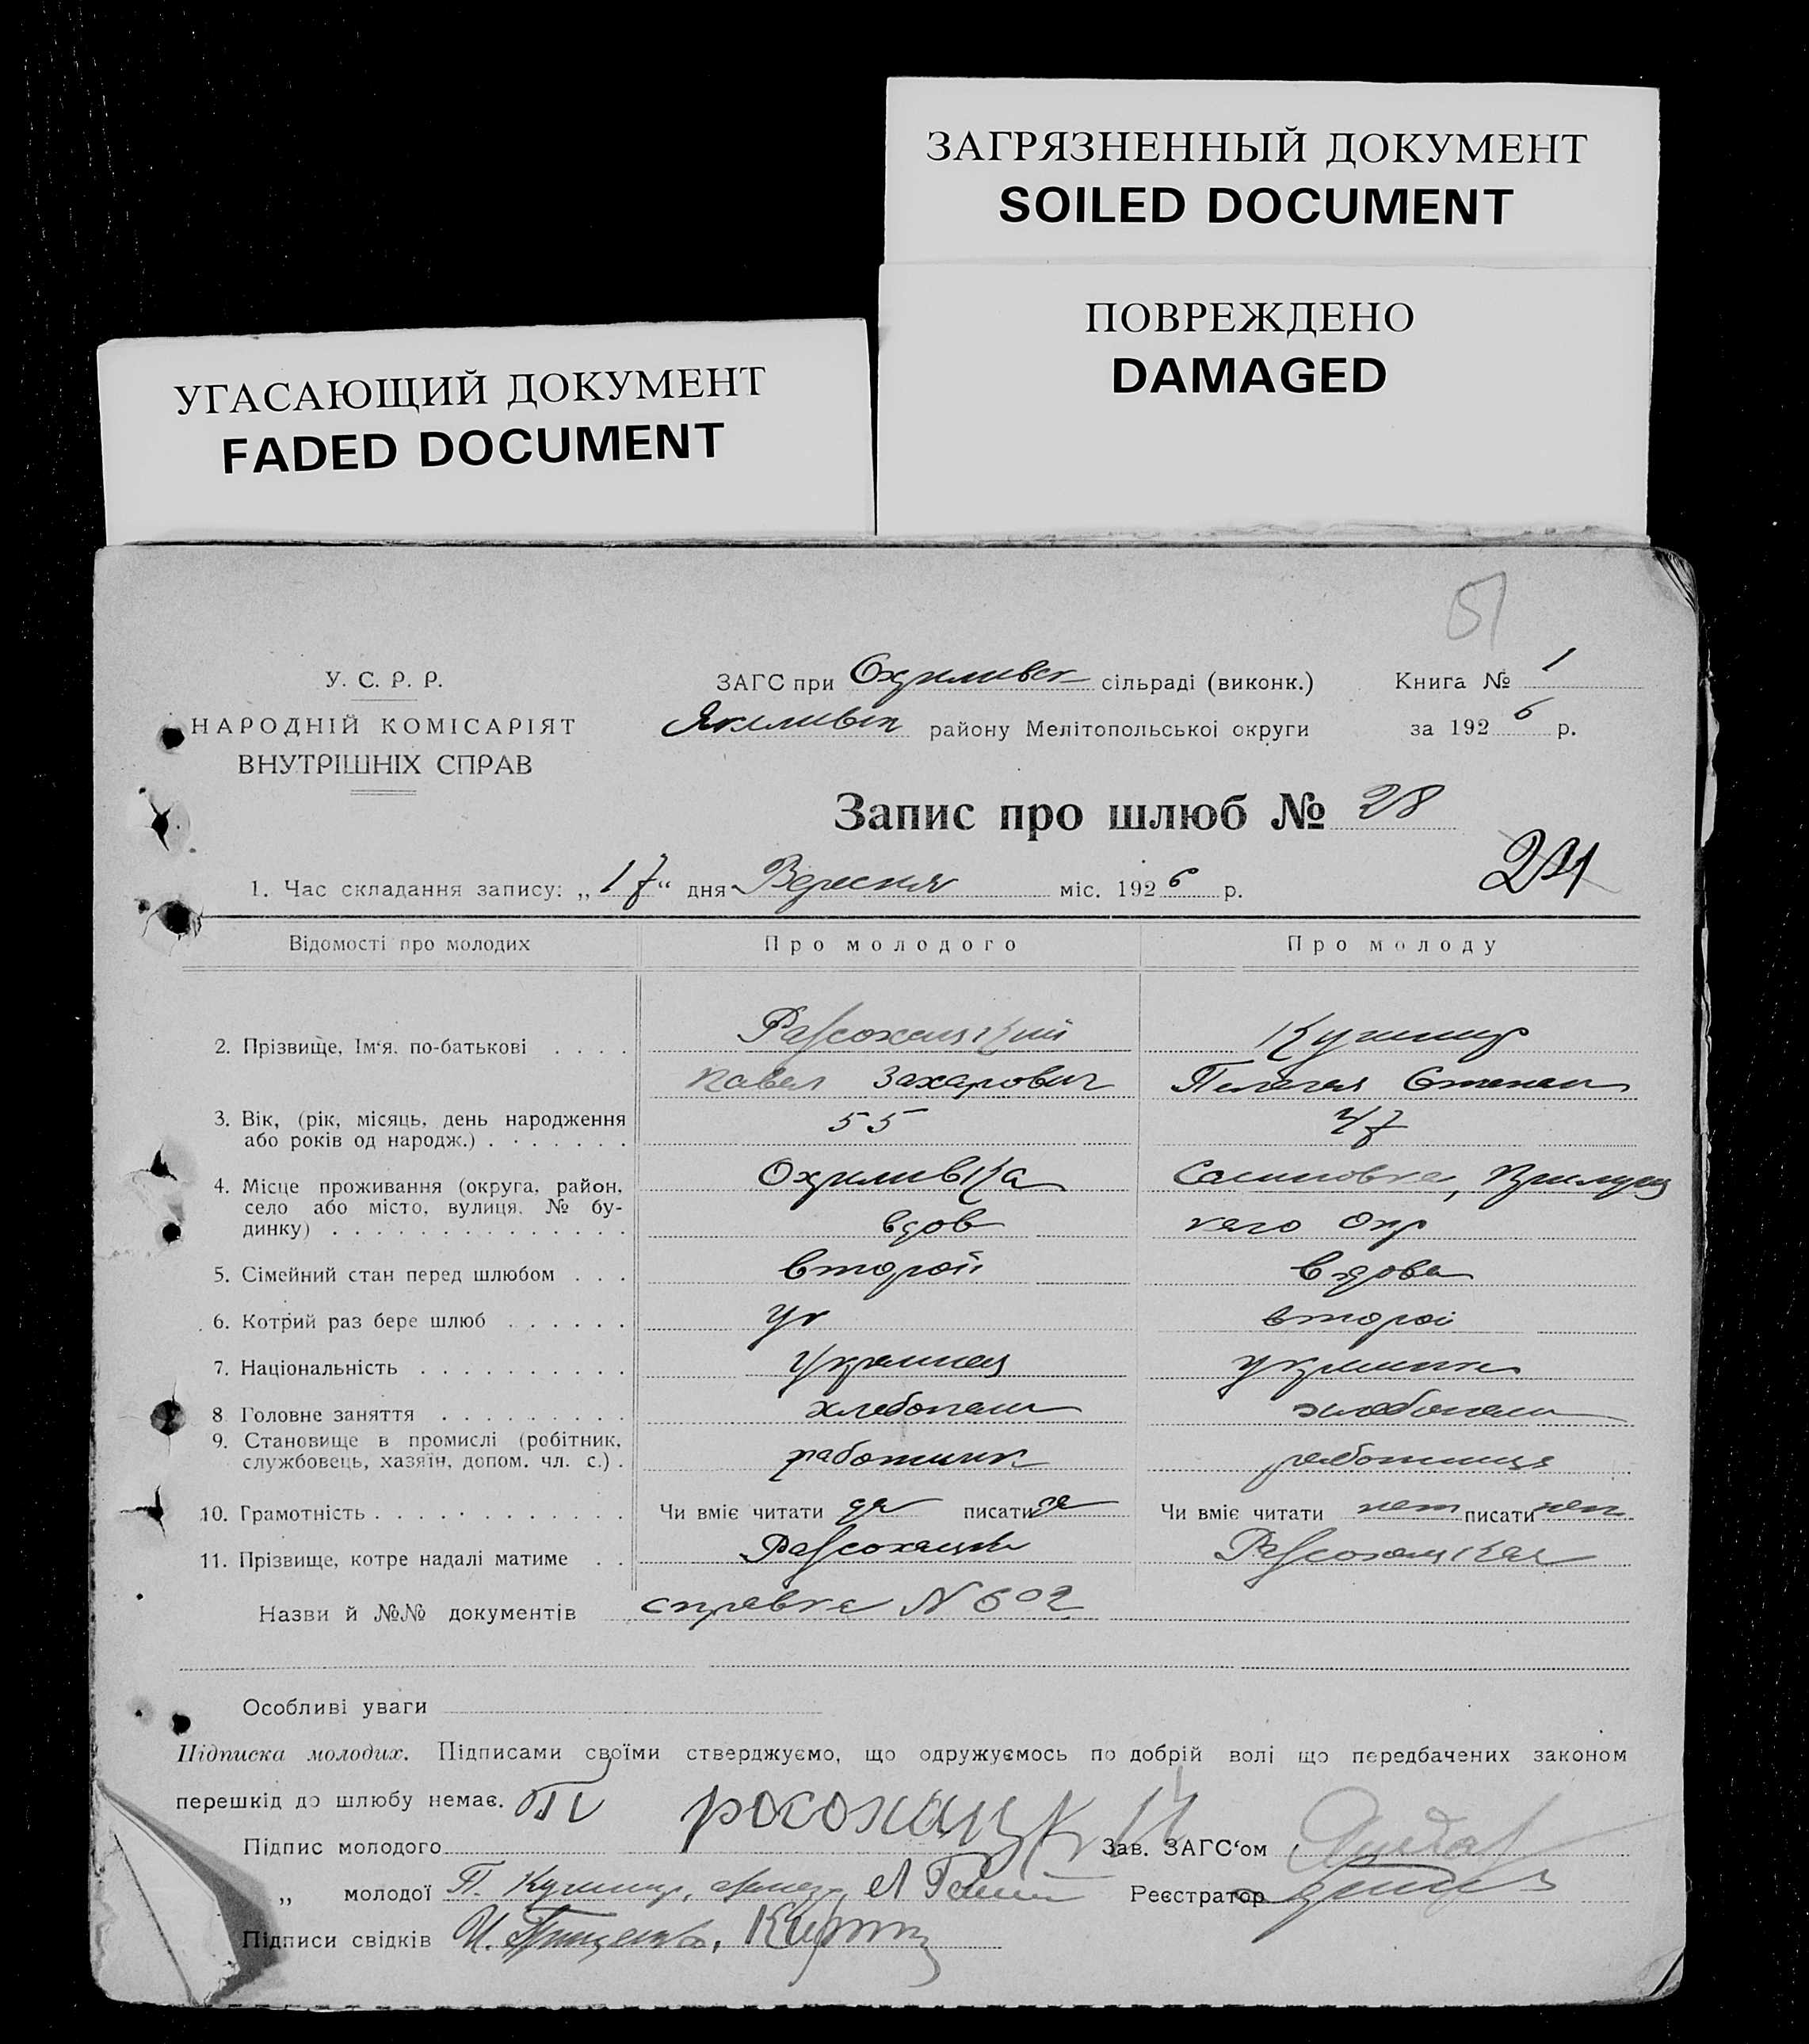 ЗАГРЯЗНЕННЫЙ ДОКУМЕНТ
SOILED DOCUMENT
ПОВРЕЖДЕНО
DAMAGED
УГАСАЮЩИЙ ДОКУМЕНТ
FADED DOCUMENT
51
У. С. Р. Р.
НАРОДНІЙ КОМІСАРІЯТ
ВНУТРІШНІХ СПРАВ
ЗАГС при Охримивск сільраді (виконк.)
Якимивск району Мелітопольської округи
Книга № 1
за 1926 р.
Запис про шлюб № 28
1. Час складання запису: „17“ дня Вересня міс. 1926 р.
Відомості про молодих Про молодого Про молоду
2. Прізвище, Ім‘я, по-батькові Рассохацкий Кушнир
Павел Захарович Пелагея Степан
3. Вік, (рік, місяць, день народження 55 47
або років од народж.)
4. Місце проживання (округа, район, Охримивка Прилуц
село або місто, вулиця, № бу-
динку) вдов кого Окр
5. Сімейний стан перед шлюбом второй вдова
6. Котрий раз бере шлюб Ук второй
7. Національність Украинец украинка
8 Головне заняття хлебопаш хлебопаш
9. Становище в промислі (робітник,
службовець, хазяїн, допом. чл. с.) работник работница
10. Грамотність Чи вміє читати да писати да Чи вміє читати нет писати нет
11. Прізвище, котре надалі матиме Рассохацкий Рассохацкая
Назви й №№ документів справка N 602
Особливі уваги
Підписка молодих. Підписами своїми стверджуємо, що одружуємось по добрій волі що передбачених законом
перешкід до шлюбу немає.
Підпис молодого росохацкий Зав. ЗАГС‘ом
„ молодої П. Кушнир, Реєстратор
Підписи свідків И.